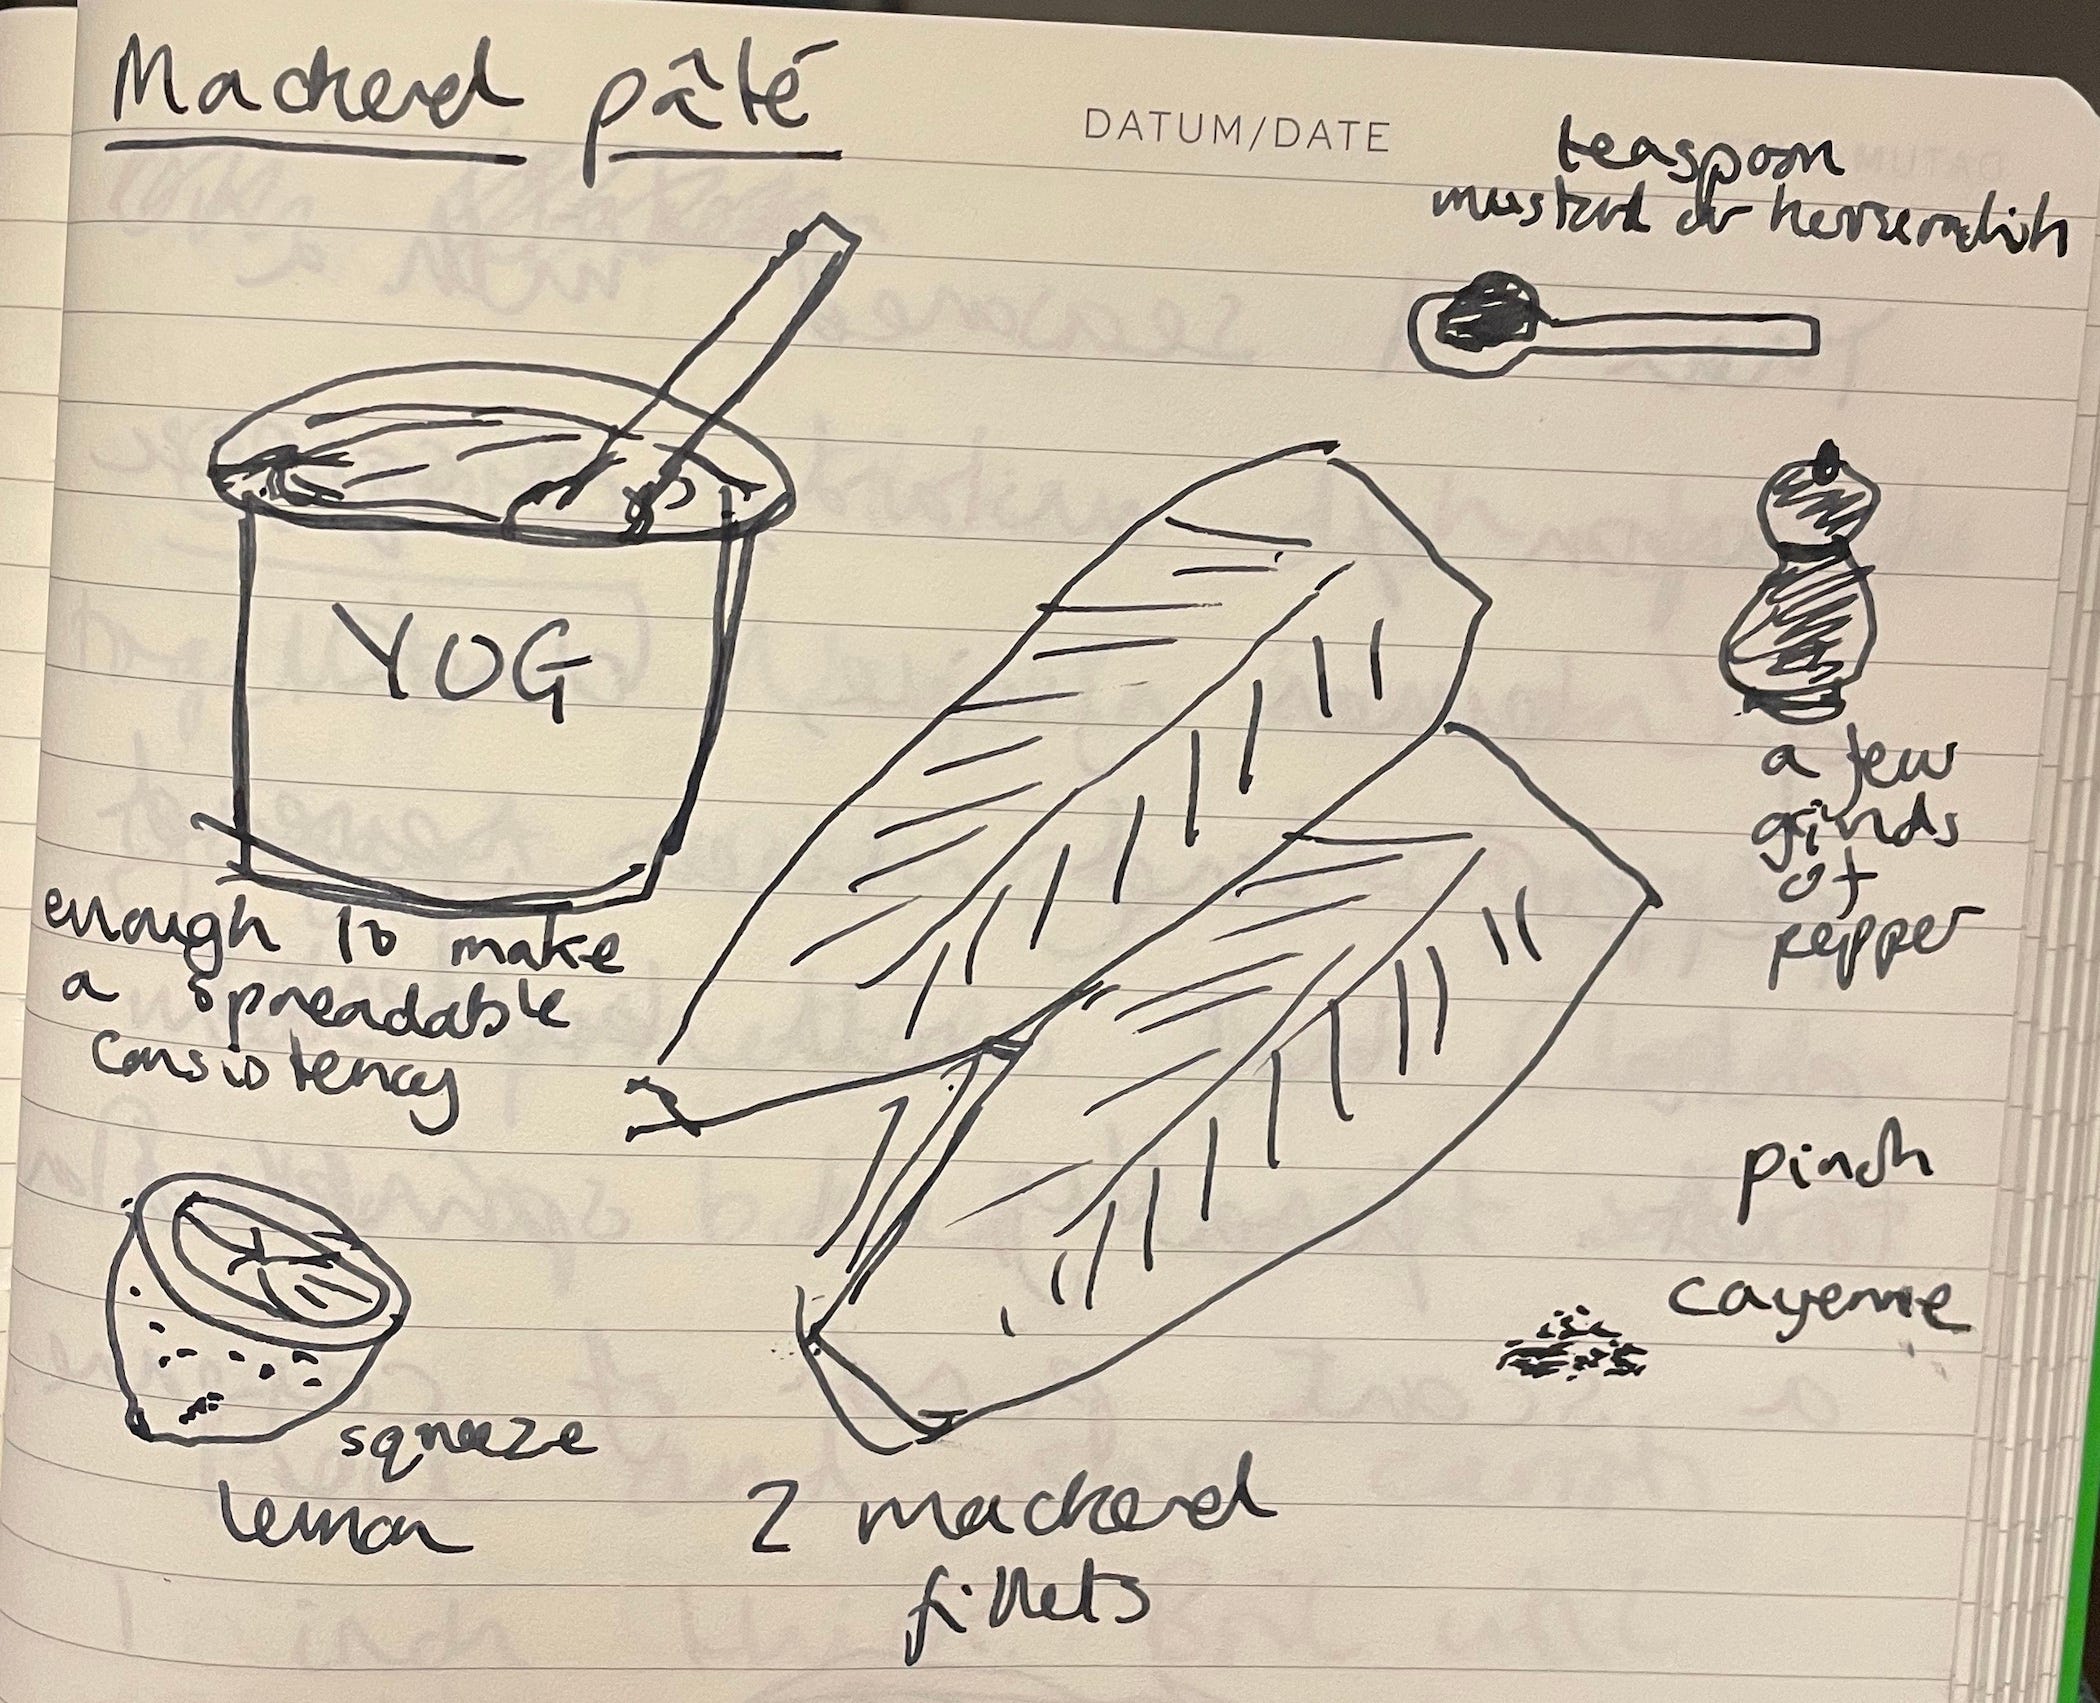 Mackerel pâté
DATUM/DATE
teaspoon
mustard or horseradish
YOG
enough to make
a spreadable
consistency
a few
grinds
of
pepper
pinch
cayenne
squeeze
lemon
2 mackerel
fillets